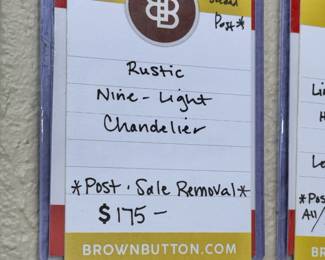 Post*
Rustic
Nine-Light
Chandelier
*Post-Sale Removal*
$175-
BROWNBUTTON.COM
Li
H
Le
*Pos
All/
B